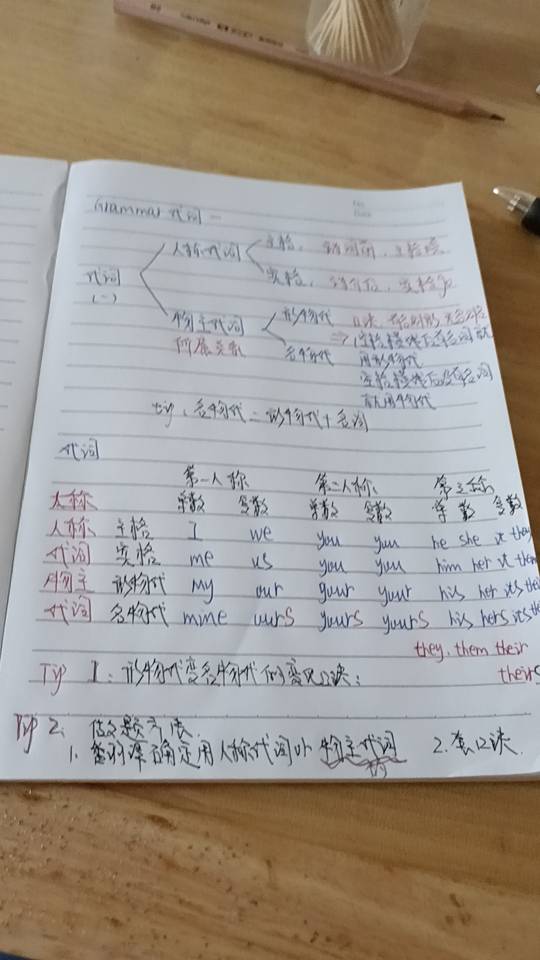 Grammar 代词一
人称代词 主格, 动词前, 主格
代词 宾格, 动词后, 宾格
(一)
物主代词 形物代 口诀
所属关系 名物代 空格横线后有名词就
用形物代
空格横线后没有名词
就用名物代
tip, 名物代 = 形物代 + 名词
代词
第一人称 第二人称 第三人称
人称 单数 复数 单数 复数 单数 复数
人称 主格 I we you you he she it they
代词 宾格 me us you you him her it them
物主 形物代 my our your your his her its
代词 名物代 mine ours yours yours his hers its
they, them their
theirs
Tip 1: 形物代变名物代的变化口诀:
Tip 2: 做题方法.
1. 确定用人称代词 物主代词 2. 套口诀.